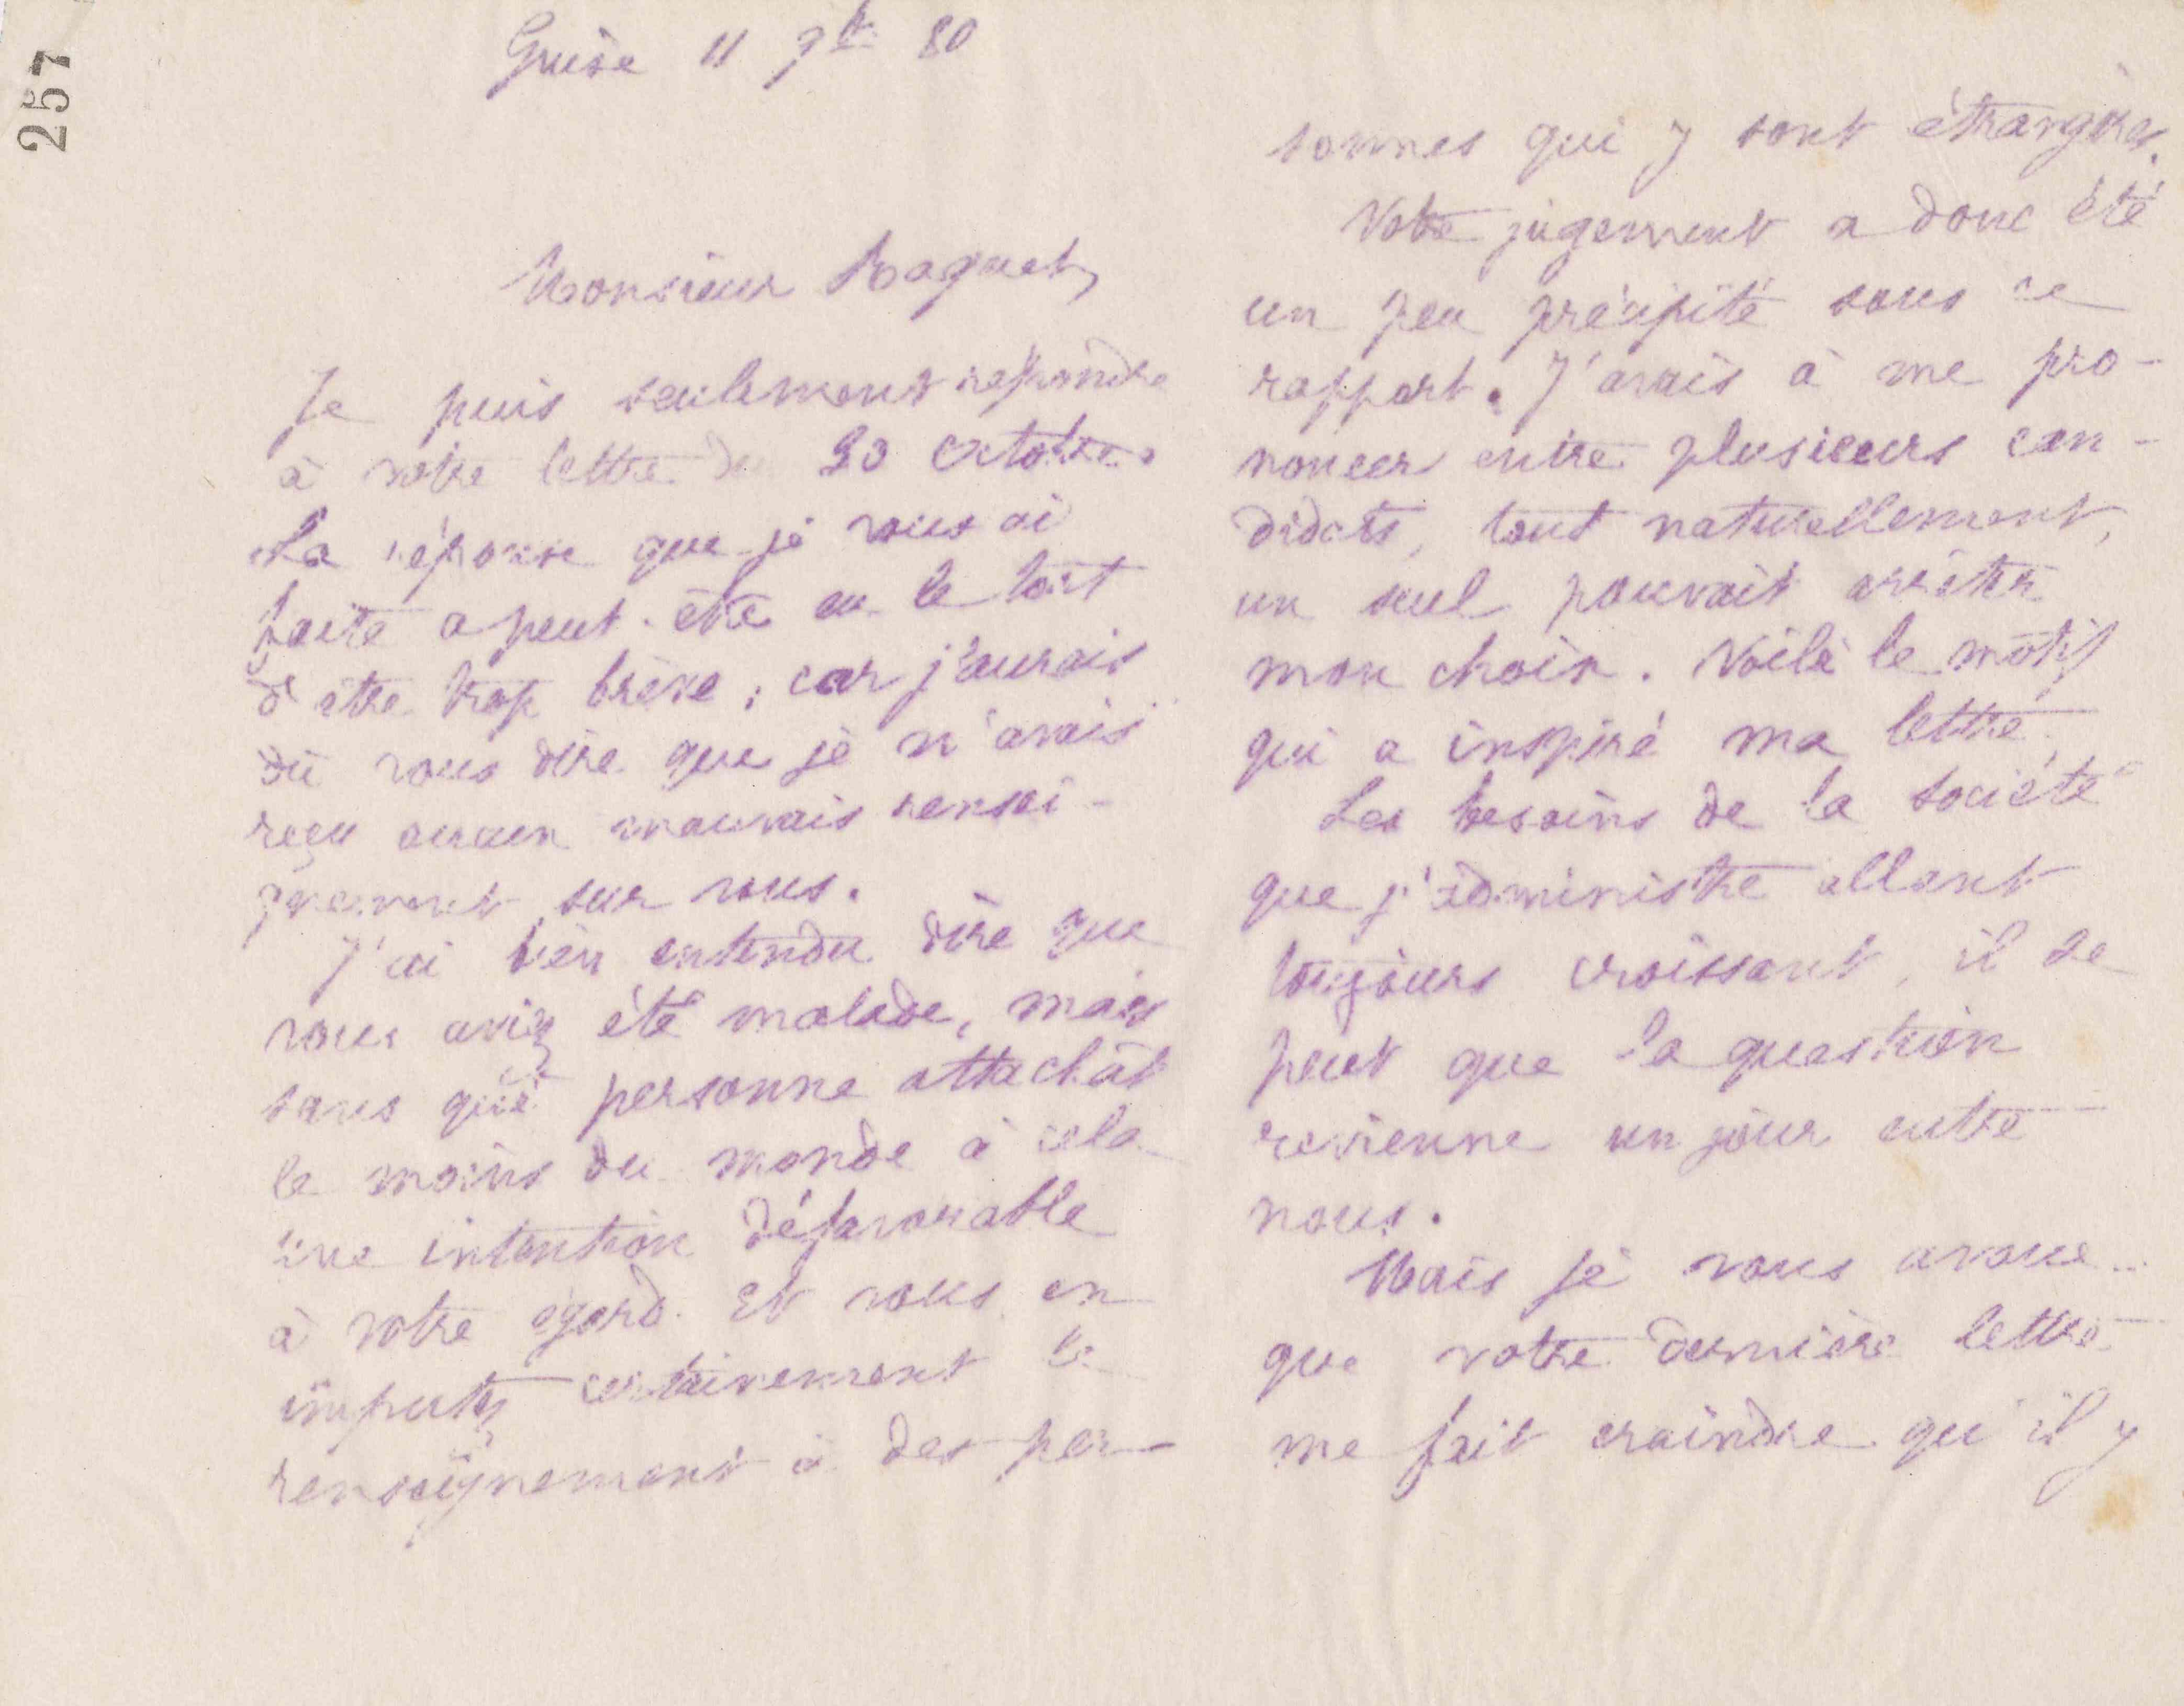 257
Guise 11 9bre 80
Monsieur Raguet,
Je puis seulement répondre
à votre lettre du 20 octobre.
La réponse que je vous ai
faite a peut-être eu le tort
d'être trop brève ; car j'aurais
dû vous dire que je n'avais
reçu aucun mauvais rensei-
gnement sur vous.
J'ai bien entendu dire que
vous aviez été malade, mais
sans que personne attachât
le moins du monde à cela
une intention défavorable
à votre égard. Et vous en
imputez certainement le
renseignement à des per-
sonnes qui y sont étrangères.
Votre jugement a donc été
un peu précipité sous ce
rapport. J'avais à me pro-
noncer entre plusieurs can-
didats, tout naturellement,
un seul pouvait arrêter
mon choix. Voilà le motif
qui a inspiré ma lettre.
Les besoins de la société
que j'administre allant
toujours croissant, il se
peut que la question
revienne un jour entre
nous.
Mais je vous avoue
que votre dernière lettre
me fait craindre qu'il y